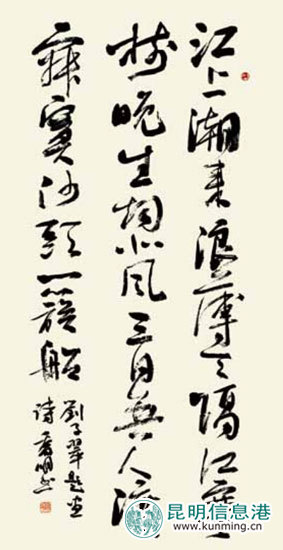 江上潮来浪薄天隔江寒
树晚生烟北风三日無人渡
寂寞沙頭一簇船
劉子翬題畫
詩
昆明信息港
www.kunming.cn